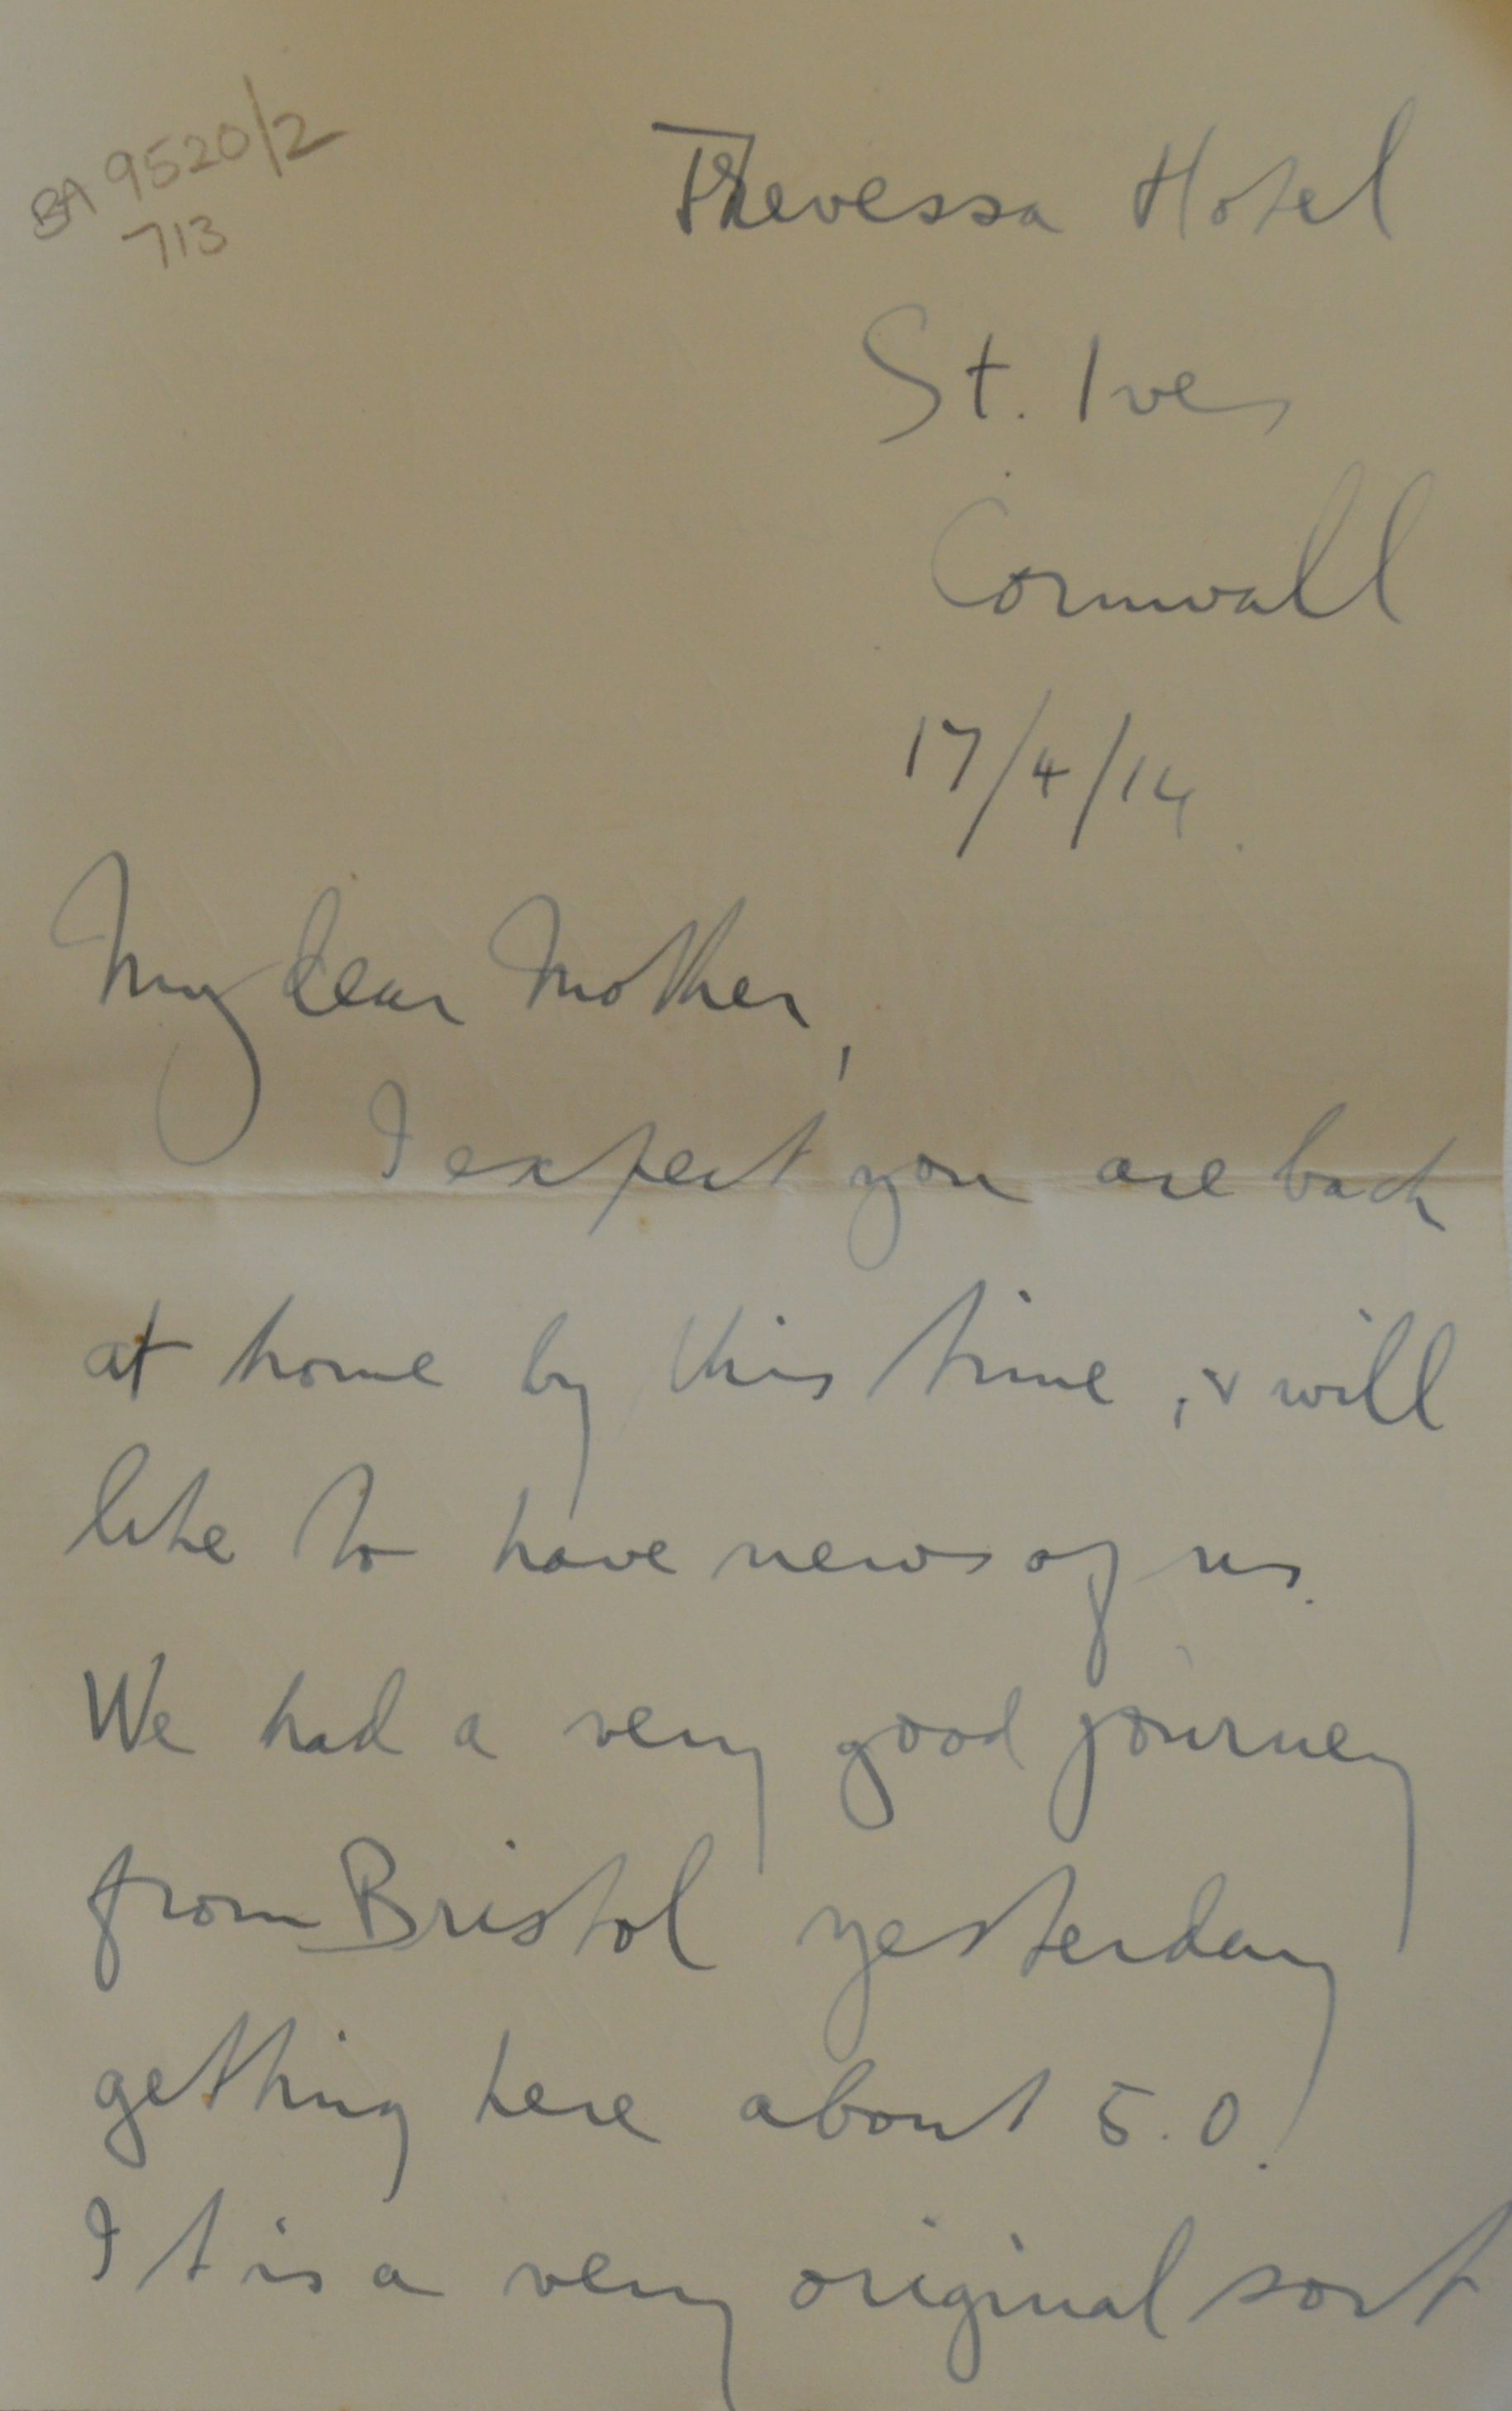 BA 9520/2
713
Thevessa Hotel
St. Ives
Cornwall
17/4/14.
My dear Mother,
I expect you are back
at home by this time, & will
like to have news of us.
We had a very good journey
from Bristol yesterday
getting here about 5.0.
It is a very original sort